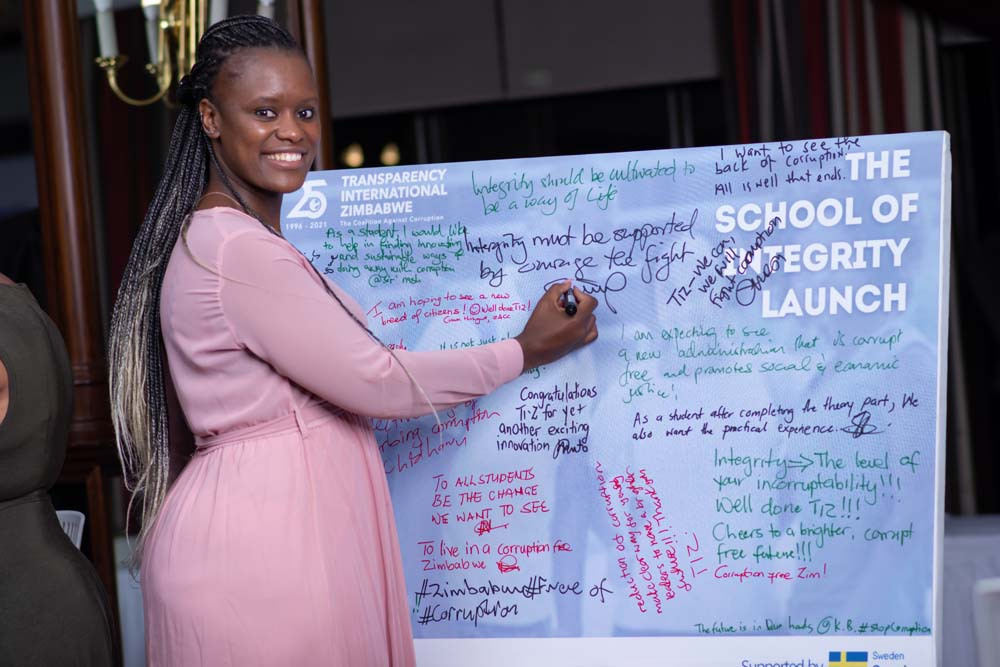 25
1996 - 2021
TRANSPARENCY
INTERNATIONAL
ZIMBABWE
The Coalition Against Corruption
THE
SCHOOL OF
INTEGRITY
LAUNCH
Integrity should be cultivated to
be a way of Life
I want to see the
back of corruption.
All is well that ends.
As a student, I would like
to help in finding innovative
and sustainable ways of
doing away with corruption
Intergrity must be supported
by courage to fight
TIZ - We can,
we will
fight corruption
I am hoping to see a new
breed of citizens! Well done TIZ!
It is not just
I am expecting to see
a new administration that is corrupt
free and promotes social & economic
justice!
Congratulations
TI-Z for yet
another exciting
innovation
As a student after completing the theory part, We
also want the practical experience.
corruption
TO ALL STUDENTS
BE THE CHANGE
WE WANT TO SEE
Integrity => The level of
your incorruptability!!!
Well done TIZ!!!
Cheers to a brighter, corrupt
free future!!!
Corruption free Zim!
reduction of corruption
TIZ
To live in a corruption free
Zimbabwe
#Zimbabwe#Free of
#Corruption
The future is in our hands @K.B. #stopCorruption
Supported by
Sweden